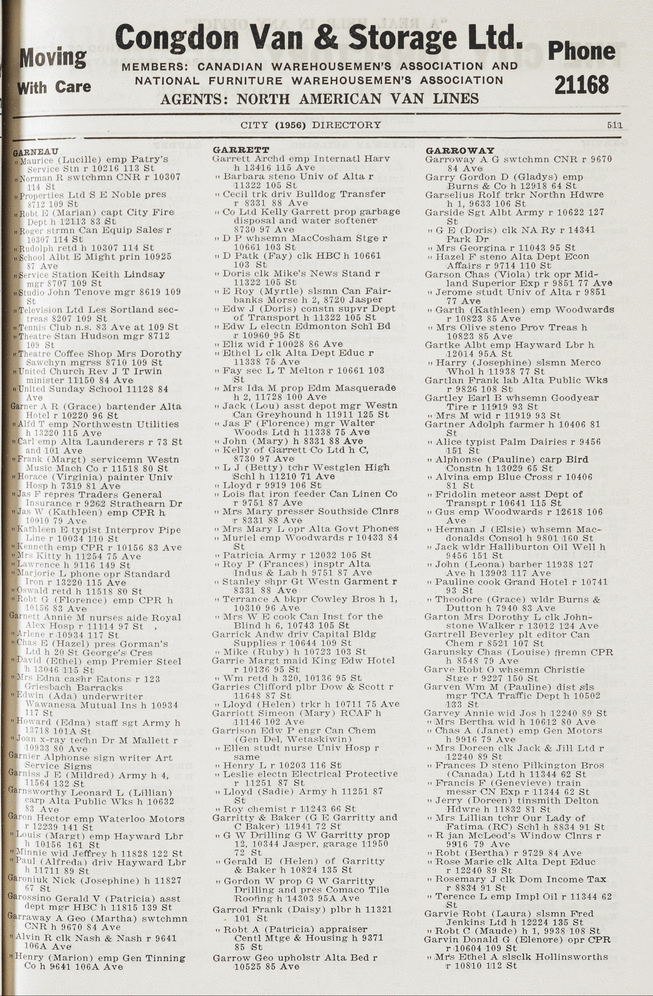 Moving
With Care
Congdon Van & Storage Ltd.
MEMBERS: CANADIAN WAREHOUSEMEN'S ASSOCIATION AND
NATIONAL FURNITURE WAREHOUSEMEN'S ASSOCIATION
AGENTS: NORTH AMERICAN VAN LINES
Phone
21168
CITY (1956) DIRECTORY
511
GARNEAU
" Maurice (Lucille) emp Patry's
Service Stn r 10216 113 St
" Norman R swtchmn CNR r 10307
114 St
" Properties Ltd S E Noble pres
8712 109 St
" Robt E (Marian) capt City Fire
Dept h 12113 83 St
" Roger strmn Can Equip Sales r
10307 114 St
" Rudolph retd h 10307 114 St
" School Albt E Might prin 10925
87 Ave
" Service Station Keith Lindsay
mgr 8707 109 St
" Studio John Tenove mgr 8619 109
St
" Television Ltd Les Sortland sec-
treas 8207 109 St
" Tennis Club n.s. 83 Ave at 109 St
" Theatre Stan Hudson mgr 8712
109 St
" Theatre Coffee Shop Mrs Dorothy
Sawdhyn mgrss 8710 109 St
" United Church Rev J T Irwin
minister 11150 84 Ave
" United Sunday School 11128 84
Ave
Garner A R (Grace) bartender Alta
Hotel r 10220 96 St
" Alfd T emp Northwestn Utilities
h 13220 115 Ave
" Carl emp Alta Launderers r 73 St
and 101 Ave
" Frank (Margt) servicemn Westn
Music Mach Co r 11518 80 St
" Horace (Virginia) painter Univ
Hosp h 7319 81 Ave
" Jas F repres Traders General
Insurance r 9262 Strathearn Dr
" Jas W (Kathleen) emp CPR h
10010 79 Ave
" Kathleen E typist Interprov Pipe
Line r 10034 110 St
" Kenneth emp CPR r 10156 83 Ave
" Mrs Kitty h 11254 75 Ave
" Lawrence h 9116 149 St
" Marjorie L phone opr Standard
Iron r 13220 115 Ave
" Oswald retd h 11518 80 St
" Robt G (Florence) emp CPR h
10156 83 Ave
Garnett Annie M nurses aide Royal
Alex Hosp r 11114 97 St
" Arlene r 10934 117 St
" Chas E (Hazel) pres Gorman's
Ltd h 20 St George's Cres
" David (Ethel) emp Premier Steel
h 13046 115 St
" Mrs Edna cashr Eatons r 123
Griesbach Barracks
" Edwin (Ada) underwriter
Wawanesa Mutual Ins h 10934
117 St
" Howard (Edna) staff sgt Army h
13718 101A St
" Joan x-ray techn Dr M Mallett r
10933 80 Ave
Garnier Alphonse sign writer Art
Service Signs
Garniss J E (Mildred) Army h 4,
11564 132 St
Garnsworthy Leonard L (Lillian)
carp Alta Public Wks h 10632
83 Ave
Garon Hector emp Waterloo Motors
r 12239 141 St
" Louis (Margt) emp Hayward Lbr
h 10156 161 St
" Minnie wid Jeffrey h 11828 122 St
" Paul (Alfreda) driv Hayward Lbr
h 11711 89 St
Garoniuk Nick (Josephine) h 11827
67 St
Garossino Gerald V (Patricia) asst
dept mgr HBC h 11815 139 St
Garraway A Geo (Martha) swtchmn
CNR h 9670 84 Ave
" Alvin R clk Nash & Nash r 9641
106A Ave
" Henry (Marion) emp Gen Tinning
Co h 9641 106A Ave
GARRETT
Garrett Archd emp Internatl Harv
h 13416 115 Ave
" Barbara steno Univ of Alta r
11322 105 St
" Cecil trk driv Bulldog Transfer
r 8331 88 Ave
" Co Ltd Kelly Garrett prop garbage
disposal and water softener
8730 97 Ave
" D P whsemn MacCosham Stge r
10661 103 St
" D Patk (Fay) clk HBC h 10661
103 St
" Doris clk Mike's News Stand r
11322 105 St
" E Roy (Myrtle) slsmn Can Fair-
banks Morse h 2, 8720 Jasper
" Edw J (Doris) constn supvr Dept
of Transport h 11322 105 St
" Edw L electn Edmonton Schl Bd
r 10960 95 St
" Eliz wid r 10028 86 Ave
" Ethel L clk Alta Dept Educ r
11338 75 Ave
" Fay sec L T Melton r 10661 103
St
" Mrs Ida M prop Edm Masquerade
h 2, 11728 100 Ave
" Jack (Lou) asst depot mgr Westn
Can Greyhound h 11911 125 St
" Jas F (Florence) mgr Walter
Woods Ltd h 11338 75 Ave
" John (Mary) h 8331 88 Ave
" Kelly of Garrett Co Ltd h C,
8730 97 Ave
" L J (Betty) tchr Westglen High
Schl h 11210 71 Ave
" Lloyd r 9919 106 St
" Lois flat iron feeder Can Linen Co
r 9751 87 Ave
" Mrs Mary presser Southside Clnrs
r 8331 88 Ave
" Mrs Mary L opr Alta Govt Phones
" Muriel emp Woodwards r 10433 84
St
" Patricia Army r 12032 105 St
" Roy P (Frances) insptr Alta
Indus & Lab h 9751 87 Ave
" Stanley shpr Gt Westn Garment r
8331 88 Ave
" Terrance A bkpr Cowley Bros h 1,
10310 96 Ave
" Mrs W E cook Can Inst for the
Blind h 6, 10743 105 St
Garrick Andw driv Capital Bldg
Supplies r 10644 109 St
" Mike (Ruby) h 10723 103 St
Garrie Margt maid King Edw Hotel
r 10136 95 St
" Wm retd h 320, 10136 95 St
Garries Clifford plbr Dow & Scott r
11648 87 St
" Lloyd (Helen) trkr h 10711 75 Ave
Garriott Simeon (Mary) RCAF h
11146 102 Ave
Garrison Edw P engr Can Chem
(Gen Del, Wetaskiwin)
" Ellen studt nurse Univ Hosp r
same
" Henry L r 10203 116 St
" Leslie electn Electrical Protective
r 11251 87 St
" Lloyd (Sadie) Army h 11251 87
St
" Roy chemist r 11243 66 St
Garritty & Baker (G E Garritty and
C Baker) 11941 72 St
" G W Drilling G W Garritty prop
12, 10344 Jasper, garage 11950
72 St
" Gerald E (Helen) of Garritty
& Baker h 10824 135 St
" Gordon W prop G W Garritty
Drilling and pres Comaco Tile
Roofing h 14303 95A Ave
Garrod Frank (Daisy) plbr h 11321
101 St
" Robt A (Patricia) appraiser
Centl Mtge & Housing h 9371
85 St
Garrow Geo upholstr Alta Bed r
10525 85 Ave
GARROWAY
Garroway A G swtchmn CNR r 9670
84 Ave
Garry Gordon D (Gladys) emp
Burns & Co h 12918 64 St
Garselius Rolf trkr Northn Hdwre
h 1, 9633 106 St
Garside Sgt Albt Army r 10622 127
St
" G E (Doris) clk NA Ry r 14341
Park Dr
" Mrs Georgina r 11043 95 St
" Hazel F steno Alta Dept Econ
Affairs r 9714 110 St
Garson Chas (Viola) trk opr Mid-
land Superior Exp r 9851 77 Ave
" Jerome studt Univ of Alta r 9851
77 Ave
" Garth (Kathleen) emp Woodwards
r 10823 85 Ave
" Mrs Olive steno Prov Treas h
10823 85 Ave
Gartke Albt emp Hayward Lbr h
12014 95A St
" Harry (Josephine) slsmn Merco
Whol h 11938 77 St
Gartlan Frank lab Alta Public Wks
r 9826 108 St
Gartley Earl B whsemn Goodyear
Tire r 11919 93 St
" Mrs M wid r 11919 93 St
Gartner Adolph farmer h 10406 81
St
" Alice typist Palm Dairies r 9456
151 St
" Alphonse (Pauline) carp Bird
Constn h 13029 65 St
" Alvina emp Blue Cross r 10406
81 St
" Fridolin meteor asst Dept of
Transpt r 10641 115 St
" Gus emp Woodwards r 12618 106
Ave
" Herman J (Elsie) whsemn Mac-
donalds Consol h 9801 160 St
" Jack wldr Halliburton Oil Well h
9456 151 St
" John (Leona) barber 11938 127
Ave h 13903 117 Ave
" Pauline cook Grand Hotel r 10741
93 St
" Theodore (Grace) wldr Burns &
Dutton h 7940 83 Ave
Garton Mrs Dorothy L clk John-
stone Walker r 13012 124 Ave
Gartrell Beverley plt editor Can
Chem r 8521 107 St
Garunsky Chas (Louise) firemn CPR
h 8548 79 Ave
Garve Robt O whsemn Christie
Stge r 9227 150 St
Garven Wm M (Pauline) dist sls
mgr TCA Traffic Dept h 10502
133 St
Garvey Annie wid Jos h 12240 89 St
" Mrs Bertha wid h 10612 80 Ave
" Chas A (Janet) emp Gen Motors
h 9916 79 Ave
" Mrs Doreen clk Jack & Jill Ltd r
12240 89 St
" Frances D steno Pilkington Bros
(Canada) Ltd h 11344 62 St
" Francis F (Genevieve) train
messr CN Exp r 11344 62 St
" Jerry (Doreen) tinsmith Delton
Hdwre h 11832 81 St
" Mrs Lillian tchr Our Lady of
Fatima (RC) Schl h 8834 91 St
" R jan McLeod's Window Clnrs r
9916 79 Ave
" Robt (Bertha) r 9729 84 Ave
" Rose Marie clk Alta Dept Educ
r 12240 89 St
" Rosemary J clk Dom Income Tax
r 8834 91 St
" Terence L emp Impl Oil r 11344 62
St
Garvie Robt (Laura) slsmn Fred
Jenkins Ltd h 12224 135 St
" Robt C (Maude) h 1, 9938 108 St
Garvin Donald G (Elenore) opr CPR
r 10604 109 St
" Mrs Ethel A slsclk Hollinsworths
r 10810 112 St